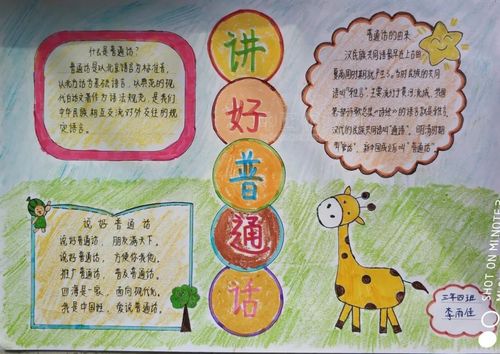 讲好普通话
什么是普通话?
普通话是以北京语言为标准音,
以北方话为基础语言,以典范的现
代白话文著作为语法规范,是我们
中华民族相互交流对外交往的规
定语言。
普通话的由来
汉民族共同语最早在上古的
夏商周时期就产生了。
第一部诗歌总集《诗经》的语言就是雅言,
汉代的民族共同语叫"通语",明清时期
叫"官话",新中国成立后叫"普通话"。
说好普通话
说好普通话, 朋友满天下。
说好普通话, 方便你我他。
推广普通话, 普及普通话。
四海是一家, 面向现代化。
我是中国娃, 爱说普通话。
三年四班
李雨佳
SHOT ON MI NOTE